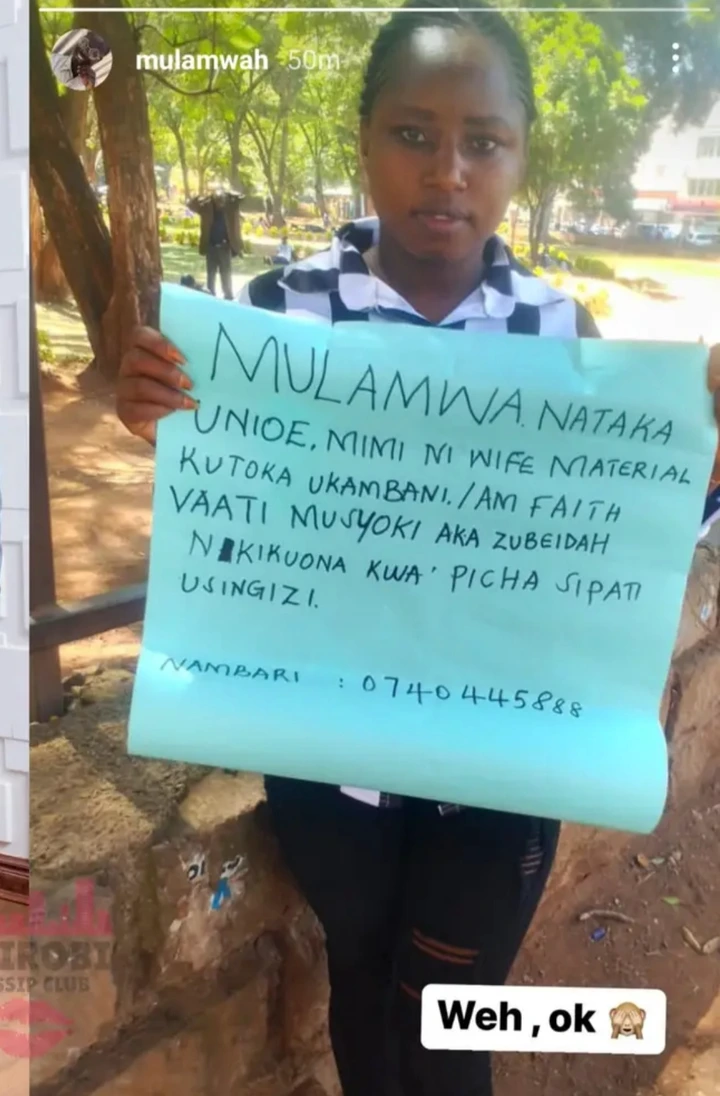 mulamwah 50m
MULAMWA. NATAKA
UNIOE, MIMI NI WIFE MATERIAL
KUTOKA UKAMBANI. /AM FAITH
VAATI MUSYOKI AKA ZUBEIDAH
NIKIKUONA KWA' PICHA SIPATI
USINGIZI.
NAMBARI : 0740445888
Weh , ok 🙈
IROBI
SSIP CLUB